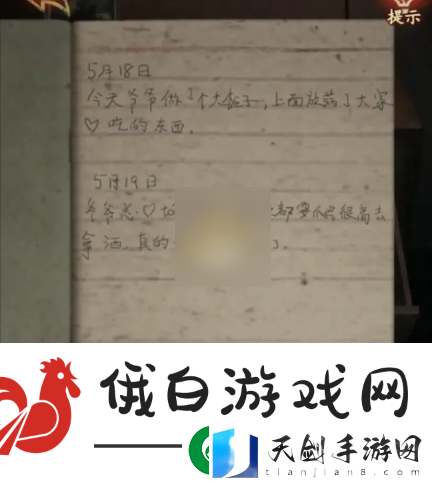 提示
5月18日
今天爷爷做了个大柜子,上面放满了大家
♡吃的东西.
5月19日
爷爷总♡ 都要爬很高去
拿酒,真的 了.
俄白游戏网
天剑手游网
tianjian8.com